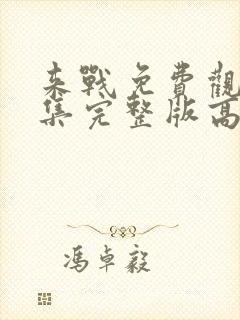 來戰免費觀
集完整版高
馮卓毅